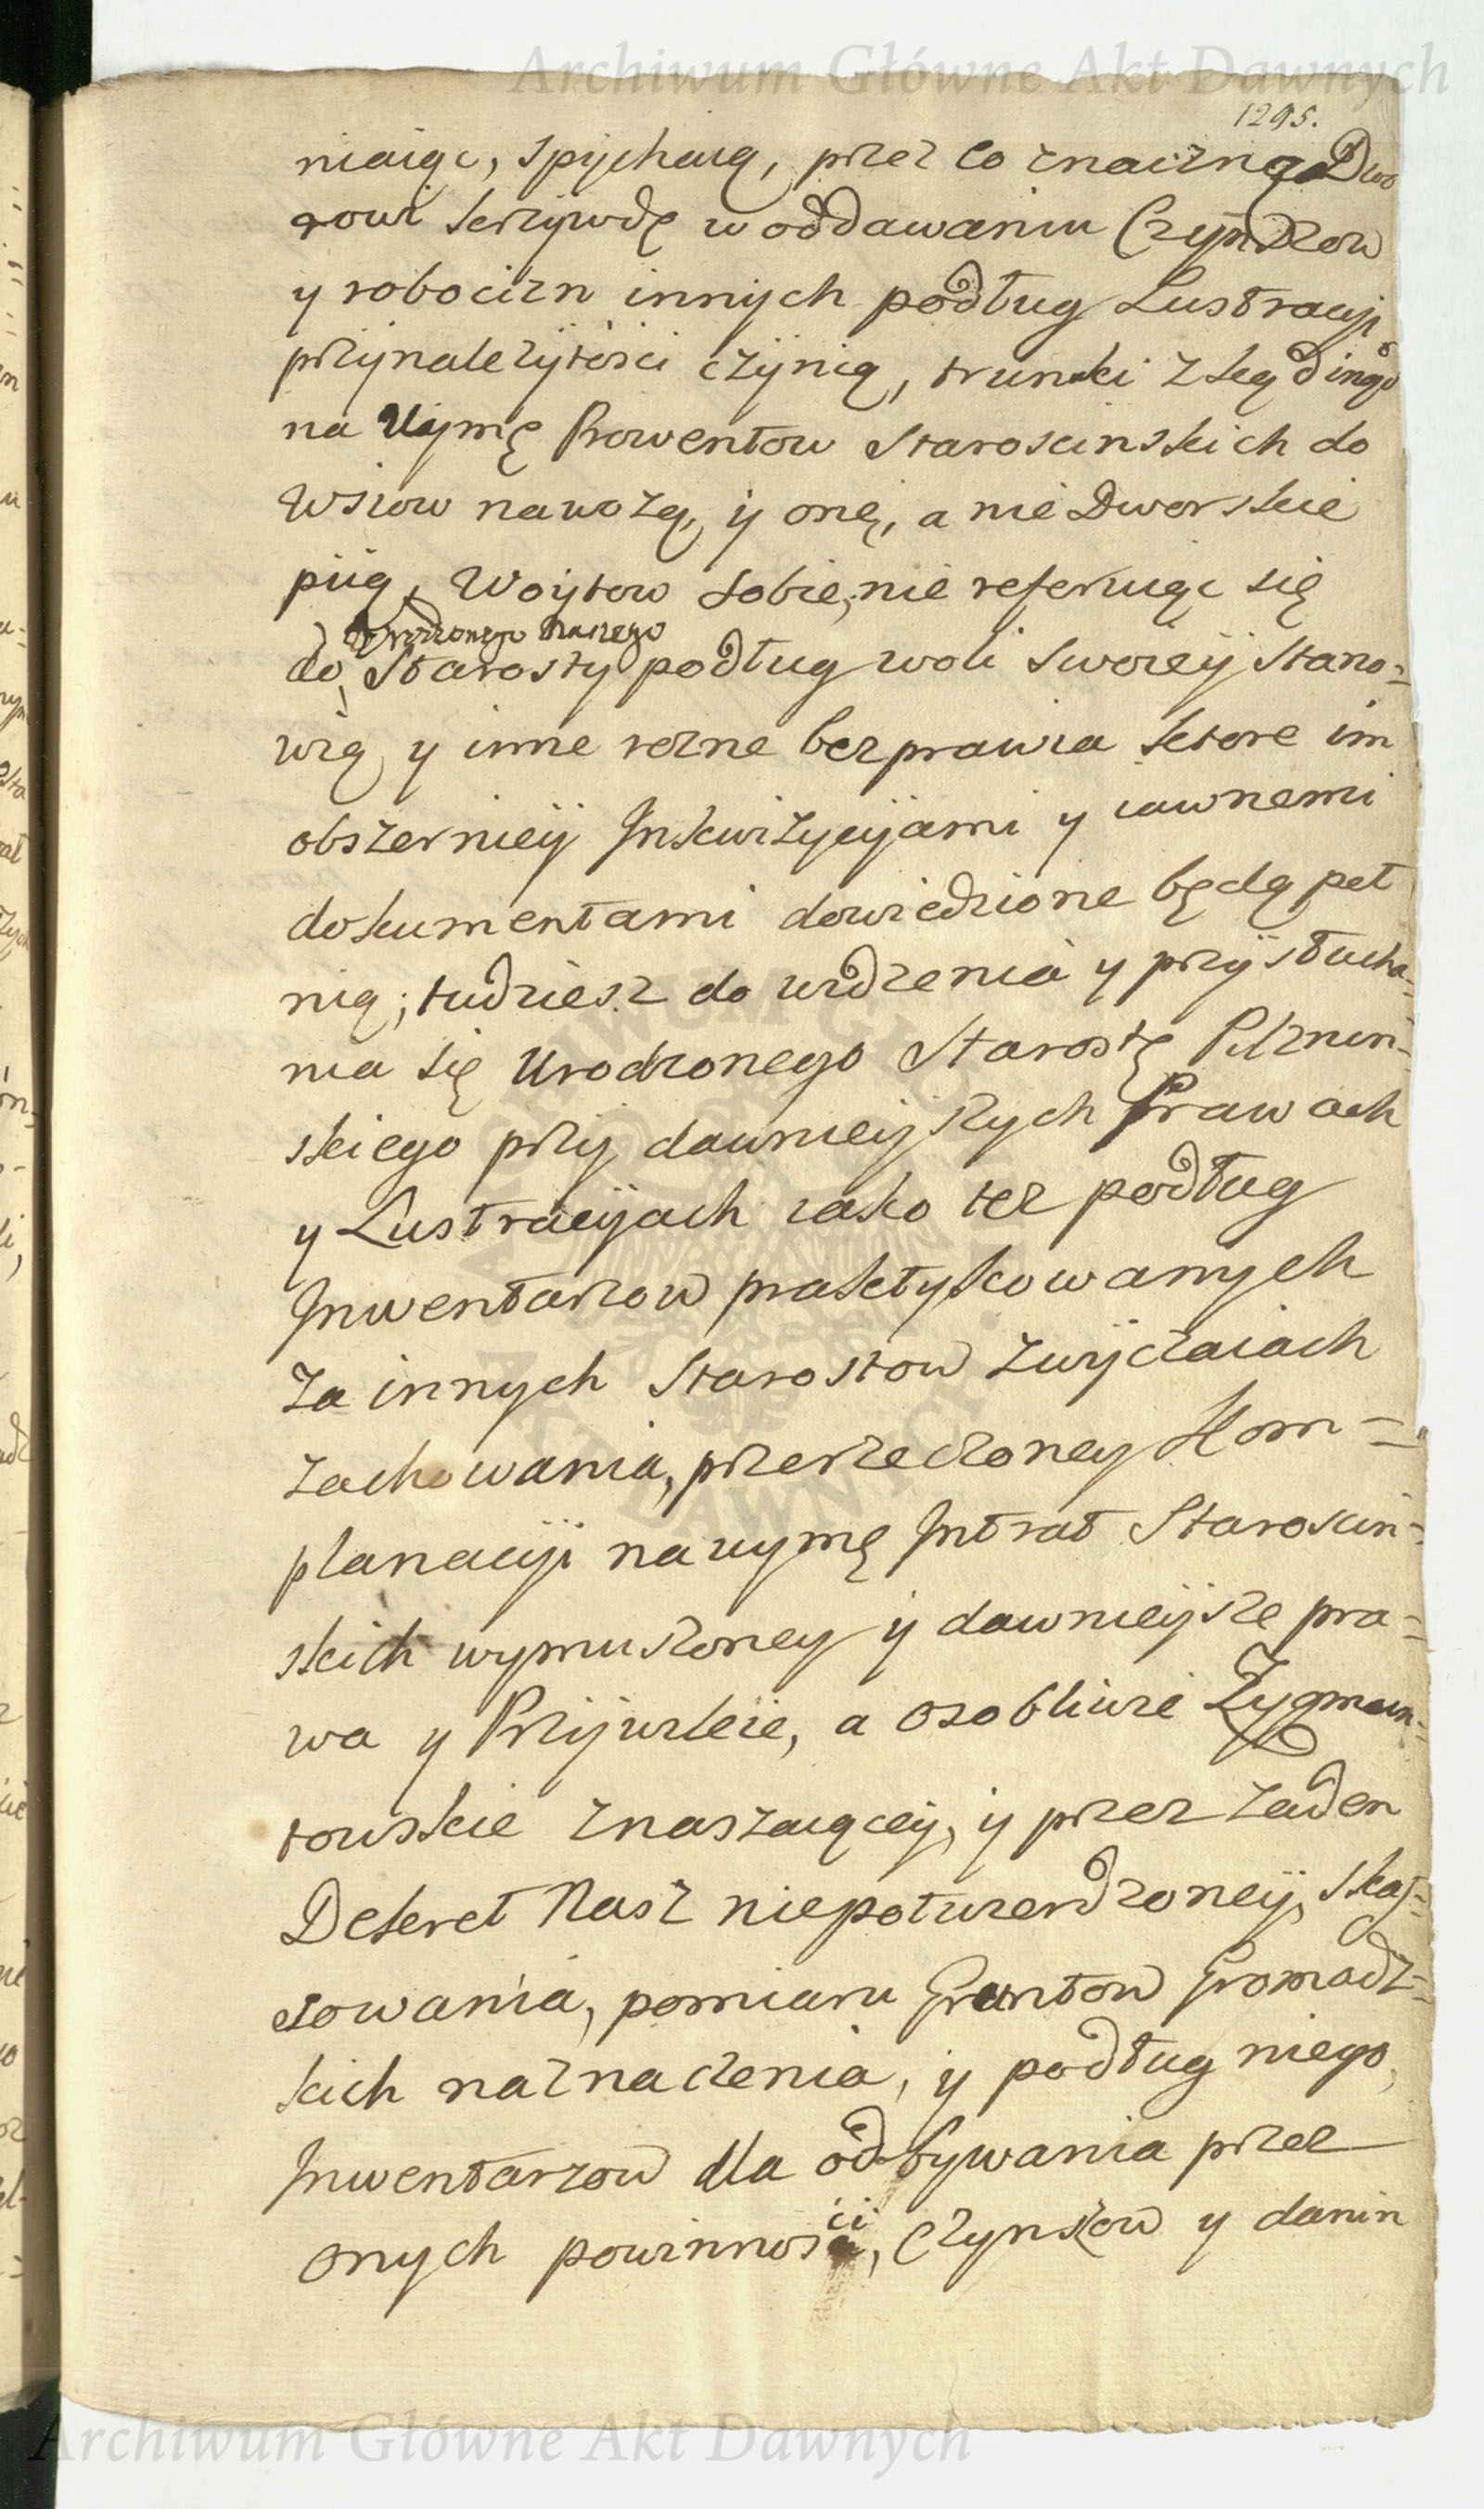 Archiwum Główne Akt Dawnych
1295.
niaiąc, spijchaią, przez co znaczną Dwo
rowi krzÿwdę w oddawaniu Czÿnszow
y robocizn innÿch podług Lustracÿi
przÿnalezÿtości czÿnią, trunki zkąd inąd
na Uymę Prowentow Staroscinskich do
Wsiow nawożą, ÿ onę, a nie Dworskie
piią, Woÿtow sobie, nie referuiąc się
Urodzonego Naszego
do Starosty podług woli swoieÿ stano=
wią y inne rozne bezprawia ktore im
obszernieÿ Inkwizÿcÿami y iawnemi
dokumentami dowiedzione będą peł
nią; tudziesz do widzenia y przÿsłucha=
nia się Urodzonego Starostę Pilznen=
skiego przÿ dawnieÿszych Prawach
y Lustracÿach iako tez podług
Inwentarzow praktykowanÿch
za innych Starostow zwÿczaiach
zachowania, przerzeczoney Kom=
planacÿi na uymę Intrat Staroscin=
skich wymuszoney ÿ dawnieÿsze pra=
wa y Przÿwileie, a osobliwie Zygmun=
towskie znaszaiąceÿ, ÿ przez zaden
Dekret Nasz niepotwierdzoneÿ, skas=
sowania, pomiaru Gruntow Gromadz=
kich naznaczenia, ÿ podług niego,
Inwentarzow dla odbywania przez
onych powinności, Czynszow y danin
ARCHIWUM GŁÓWNE AKT DAWNYCH
Archiwum Główne Akt Dawnych